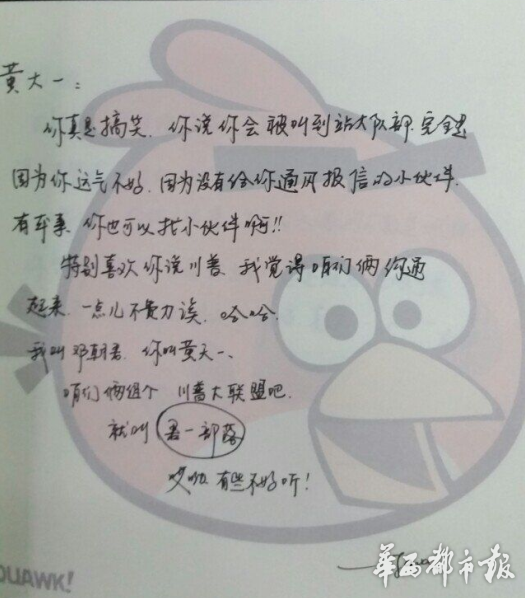 黄天一：
你真是搞笑，你说你会被叫到站大队部，完全是
因为你运气不好，因为没有给你通风报信的小伙伴.
有那事，你也可以找小伙伴啊!!
特别喜欢你说川普，我觉得咱们俩沟通
起来，一点儿不费力诶，哈哈.
我叫邓朝君，你叫黄天一、
咱们俩组个 川普大联盟吧.
就叫 君一部落
哎呦，有些不好听！
QUAWK!
华西都市报